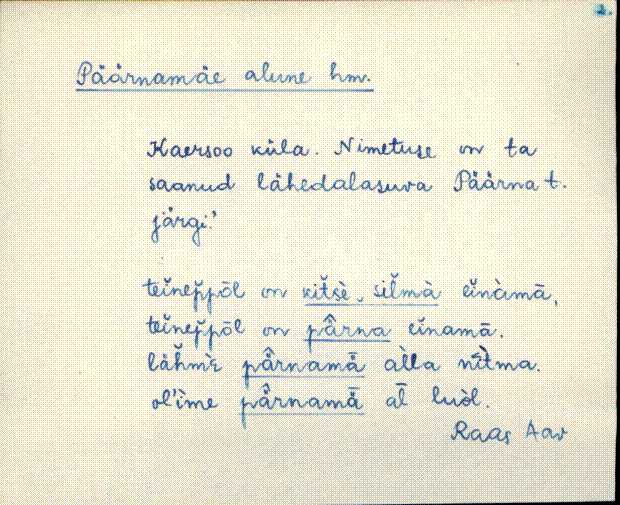 2.
Päärnamäe alune hm.
Kaersoo küla. Nimetuse on ta
saanud lähedalasuva Päärna t.
järgi.
teĭnep̆pōl on kit̆sè, sil̆mà eĭnàmā,
teĭnep̆pōl on pä̂rna eĭnamā.
läh̆mὲ pä̂rnamǟ al̀la nīt̀ma.
ol'ìme pä̂rnamǟ al̄ luòl.
Raas Aav